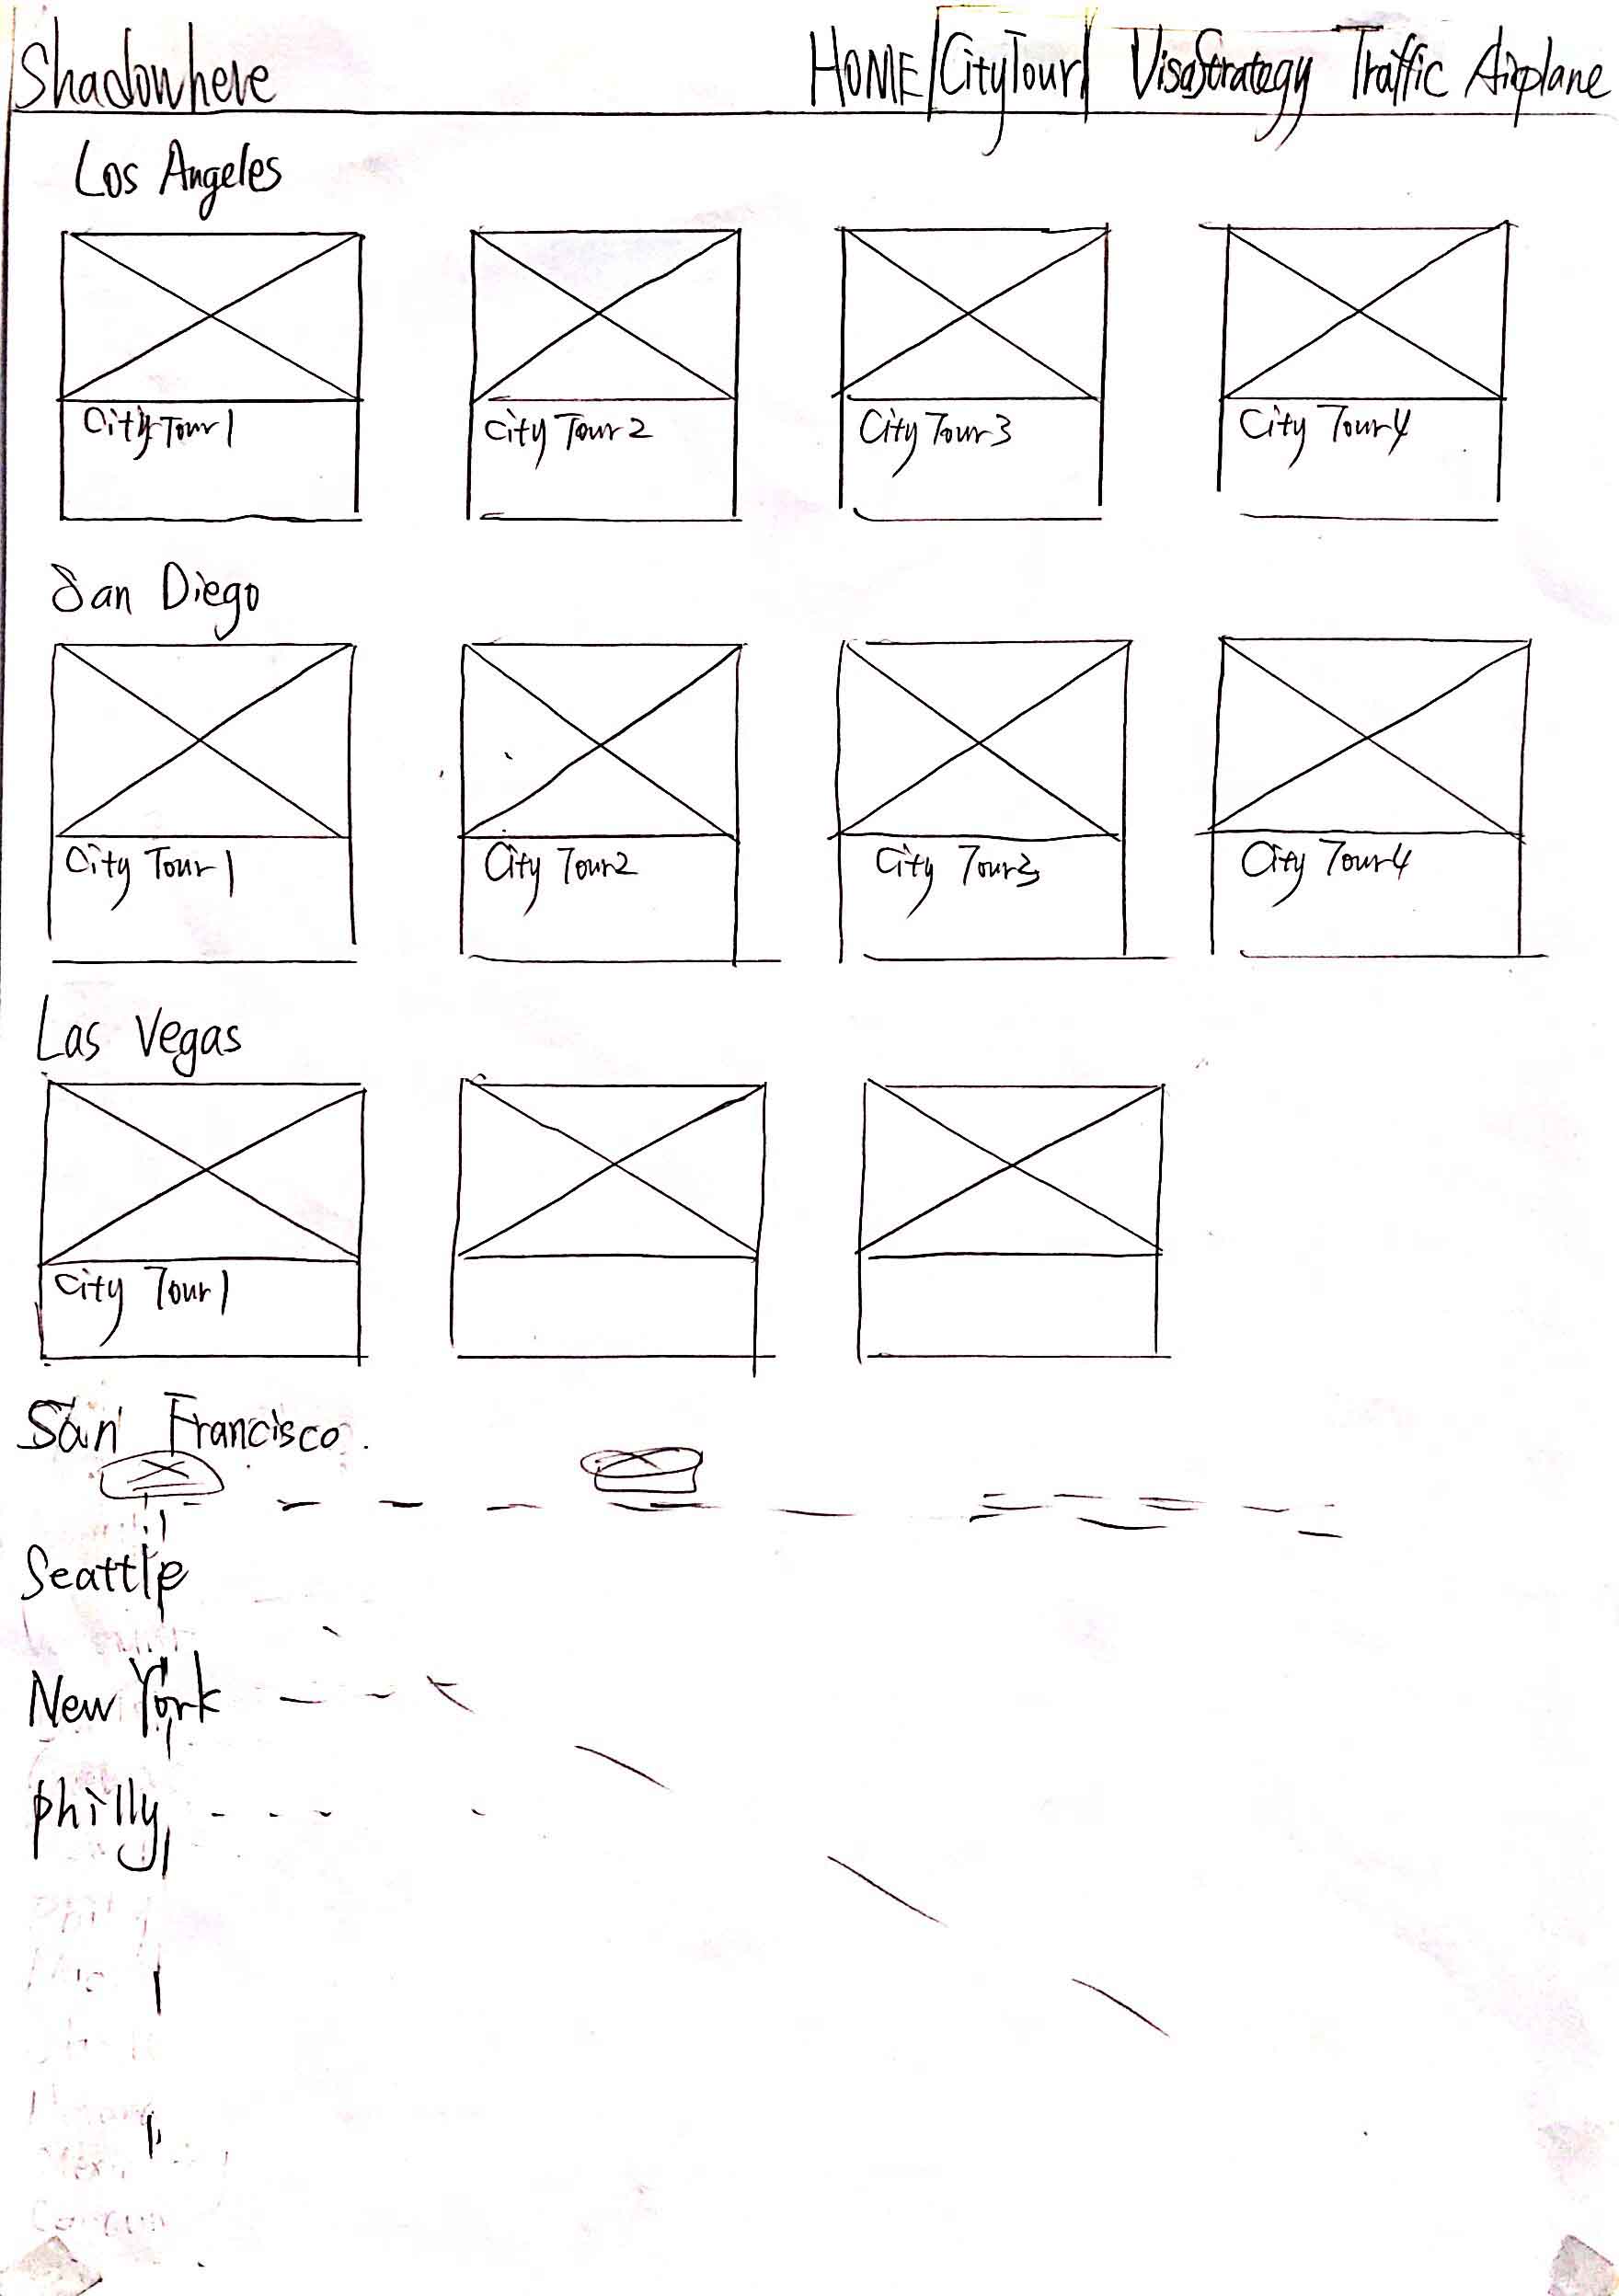 Shadowhere HOME CityTour VisaStrategy Traffic Airplane
Los Angeles
City Tour 1 City Tour 2 City Tour 3 City Tour 4
San Diego
City Tour 1 City Tour 2 City Tour 3 City Tour 4
Las Vegas
City Tour 1
San Francisco.
Seattle
New York
philly